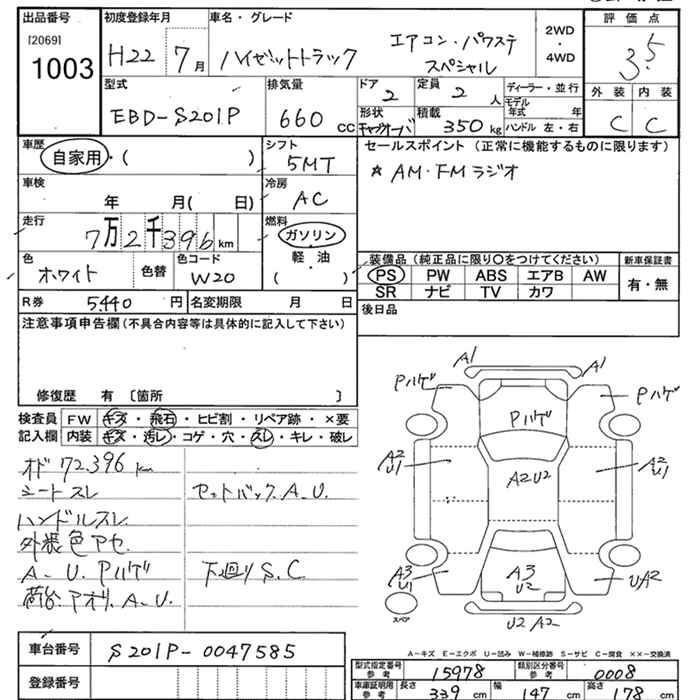 出品番号 初度登録年月 車名・グレード 評価点
[2069]
1003
H22 7月 ハイゼットトラック エアコン・パワステ スペシャル 2WD・4WD 3.5
型式 排気量 ドア 定員 ディーラー・並行 外装 内装
EBD-S201P 660cc 2 2人 モデル年式 年 C C
形状 積載 ハンドル 左・右
キャブオーバ 350kg
車歴 シフト セールスポイント(正常に機能するものに限ります)
自家用・( ) 5MT
☆AM・FMラジオ
車検 冷房
年 月( 日) AC
走行 燃料
7万2千396km ガソリン・軽油・( )
色 色替 色コード 装備品(純正品に限り○をつけてください) 新車保証書
ホワイト W20 PS PW ABS エアB AW 有・無
SR ナビ TV カワ
R券 5,440円 名変期限 月 日 後日品
注意事項申告欄(不具合内容等は具体的に記入して下さい)
修復歴 有 〔箇所 〕
検査員 FW キズ・飛石・ヒビ割・リペア跡・×要
記入欄 内装 キズ・汚レ・コゲ・穴・スレ・キレ・破レ
オド72,396km
シートスレ セットバックA.U.
ハンドルスレ
外装色アセ
A-U.Pハゲ 下廻りS.C
荷台.アオリ.A.U.
A1 A1
Pハゲ Pハゲ
Pハゲ
A2 U1 A2U2 A2 U1
A3 U1 A3 U2 UA2
スペア
U2 A2
A-キズ E-エクボ U-凹み W-補修跡 S-サビ C-腐食 ××-交換済
車台番号 S201P-0047585
型式指定番号 参考 15978 類別区分番号 参考 0008
登録番号
車庫証明用 参考 長さ 339cm 幅 147cm 高さ 178cm